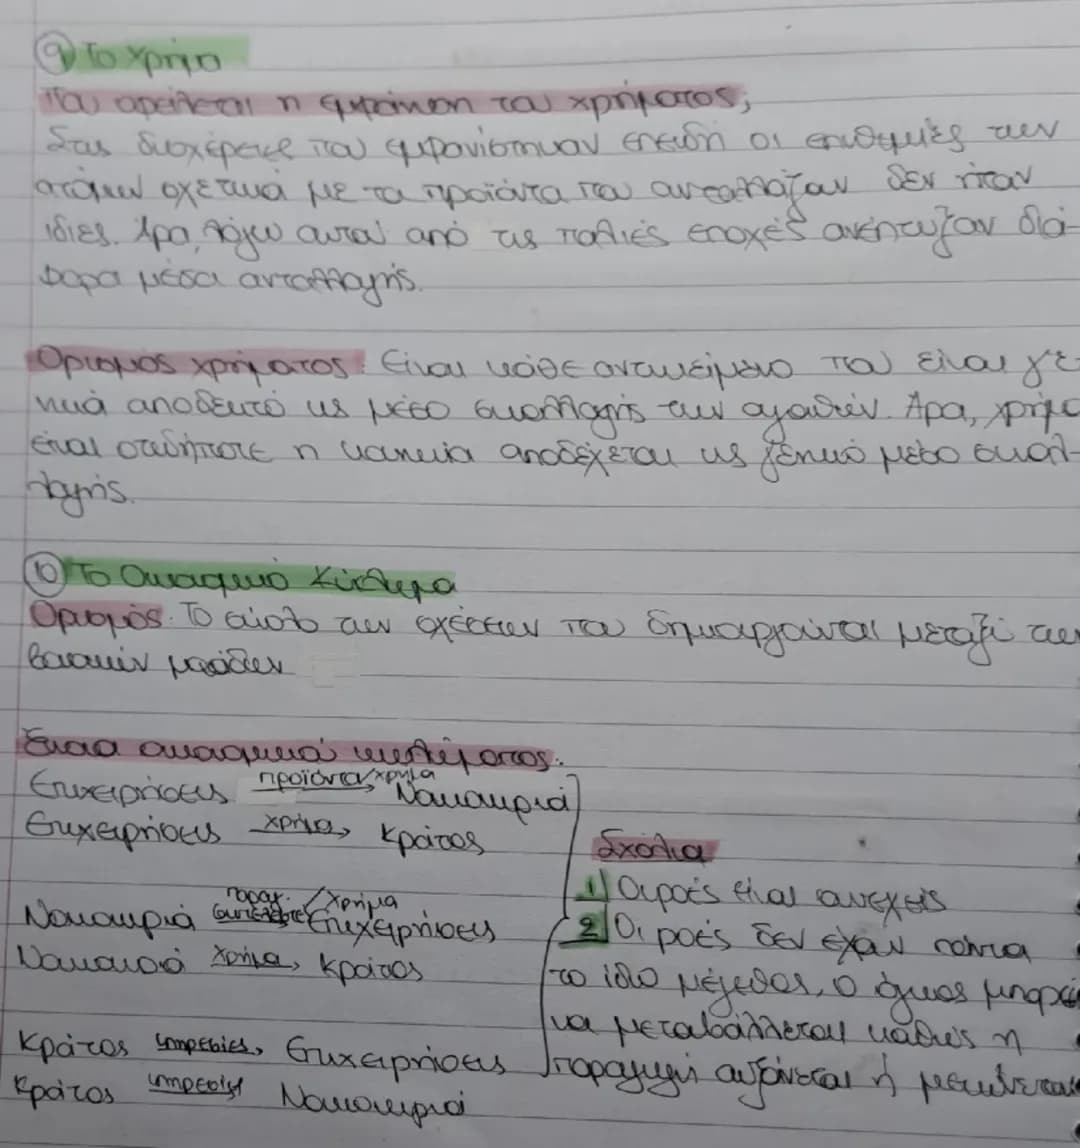 ⑨ Το χρήμα
Που οφείλεται η εμφάνιση του χρήματος;
Στις δυσχέρειες που εμφανίστηκαν επειδή οι επιθυμίες των
ατόμων σχετικά με τα προϊόντα που αντάλλαζαν δεν ήταν
ίδιες. Άρα, λόγω αυτού από τις παλιές εποχές ανέπτυξαν διά-
φορα μέσα ανταλλαγής.
Ορισμός χρήματος: Είναι κάθε αντικείμενο που είναι γε-
νικά αποδεκτό ως μέσο συναλλαγής των αγαθών. Άρα, χρήμα
είναι οτιδήποτε η κοινωνία αποδέχεται ως γενικό μέσο συναλ-
λαγής.
⑩ Το Οικονομικό Κύκλωμα
Ορισμός: Το σύνολο των σχέσεων που δημιουργούνται μεταξύ των
βασικών μονάδων
οικονομικού κυκλώματος:
Επιχειρήσεις προϊόντα/χρήμα Νοικοκυριά
Επιχειρήσεις χρήμα Κράτος
Νοικοκυριά παραγ. συντελεστές/χρήμα Επιχειρήσεις
Νοικοκυριά χρήμα Κράτος
Κράτος υπηρεσίες Επιχειρήσεις
Κράτος υπηρεσίες Νοικοκυριά
Σχόλια
1) Οι ροές είναι συνεχείς
2) Οι ροές δεν έχουν πάντα
το ίδιο μέγεθος, ο όγκος μπορεί
να μεταβάλλεται καθώς η
παραγωγή αυξάνεται ή μειώνεται